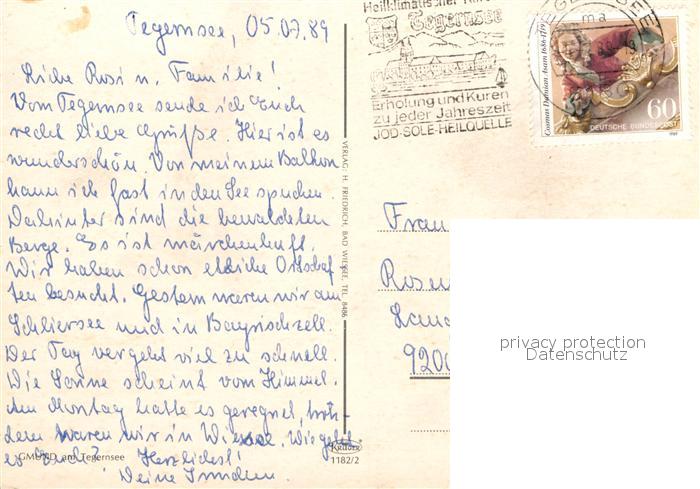 Tegernsee, 05.07.89
Liebe Rosi u. Familie!
Vom Tegernsee sende ich Euch
recht liebe Grüße. Hier ist es
wunderschön. Von meinem Balkon
kann ich fast in den See spucken.
Dahinter sind die bewaldeten
Berge. Es ist märchenhaft.
Wir haben schon etliche Ortschaf
ten besucht. Gestern waren wir am
Schliersee und in Bayrischzell.
Der Tag vergeht viel zu schnell.
Die Sonne scheint vom Himmel.
Am Montag hatte es geregnet, trotz-
dem waren wir in Wiessee. Wie geht
es Euch? Herzlichst!
Deine
GMUND am Tegernsee
VERLAG: H. FRIEDRICH, BAD WIESSEE, TEL. 8486
1182/2
Heilklimatischer
Tegernsee
Erholung und Kuren
zu jeder Jahreszeit
JOD-SOLE-HEILQUELLE
TEGERNSEE
ma
Cosmas Damian Asam 1686-1739
60
DEUTSCHE BUNDESPOST
Frau
Rosem
Land
920
privacy protection
Datenschutz